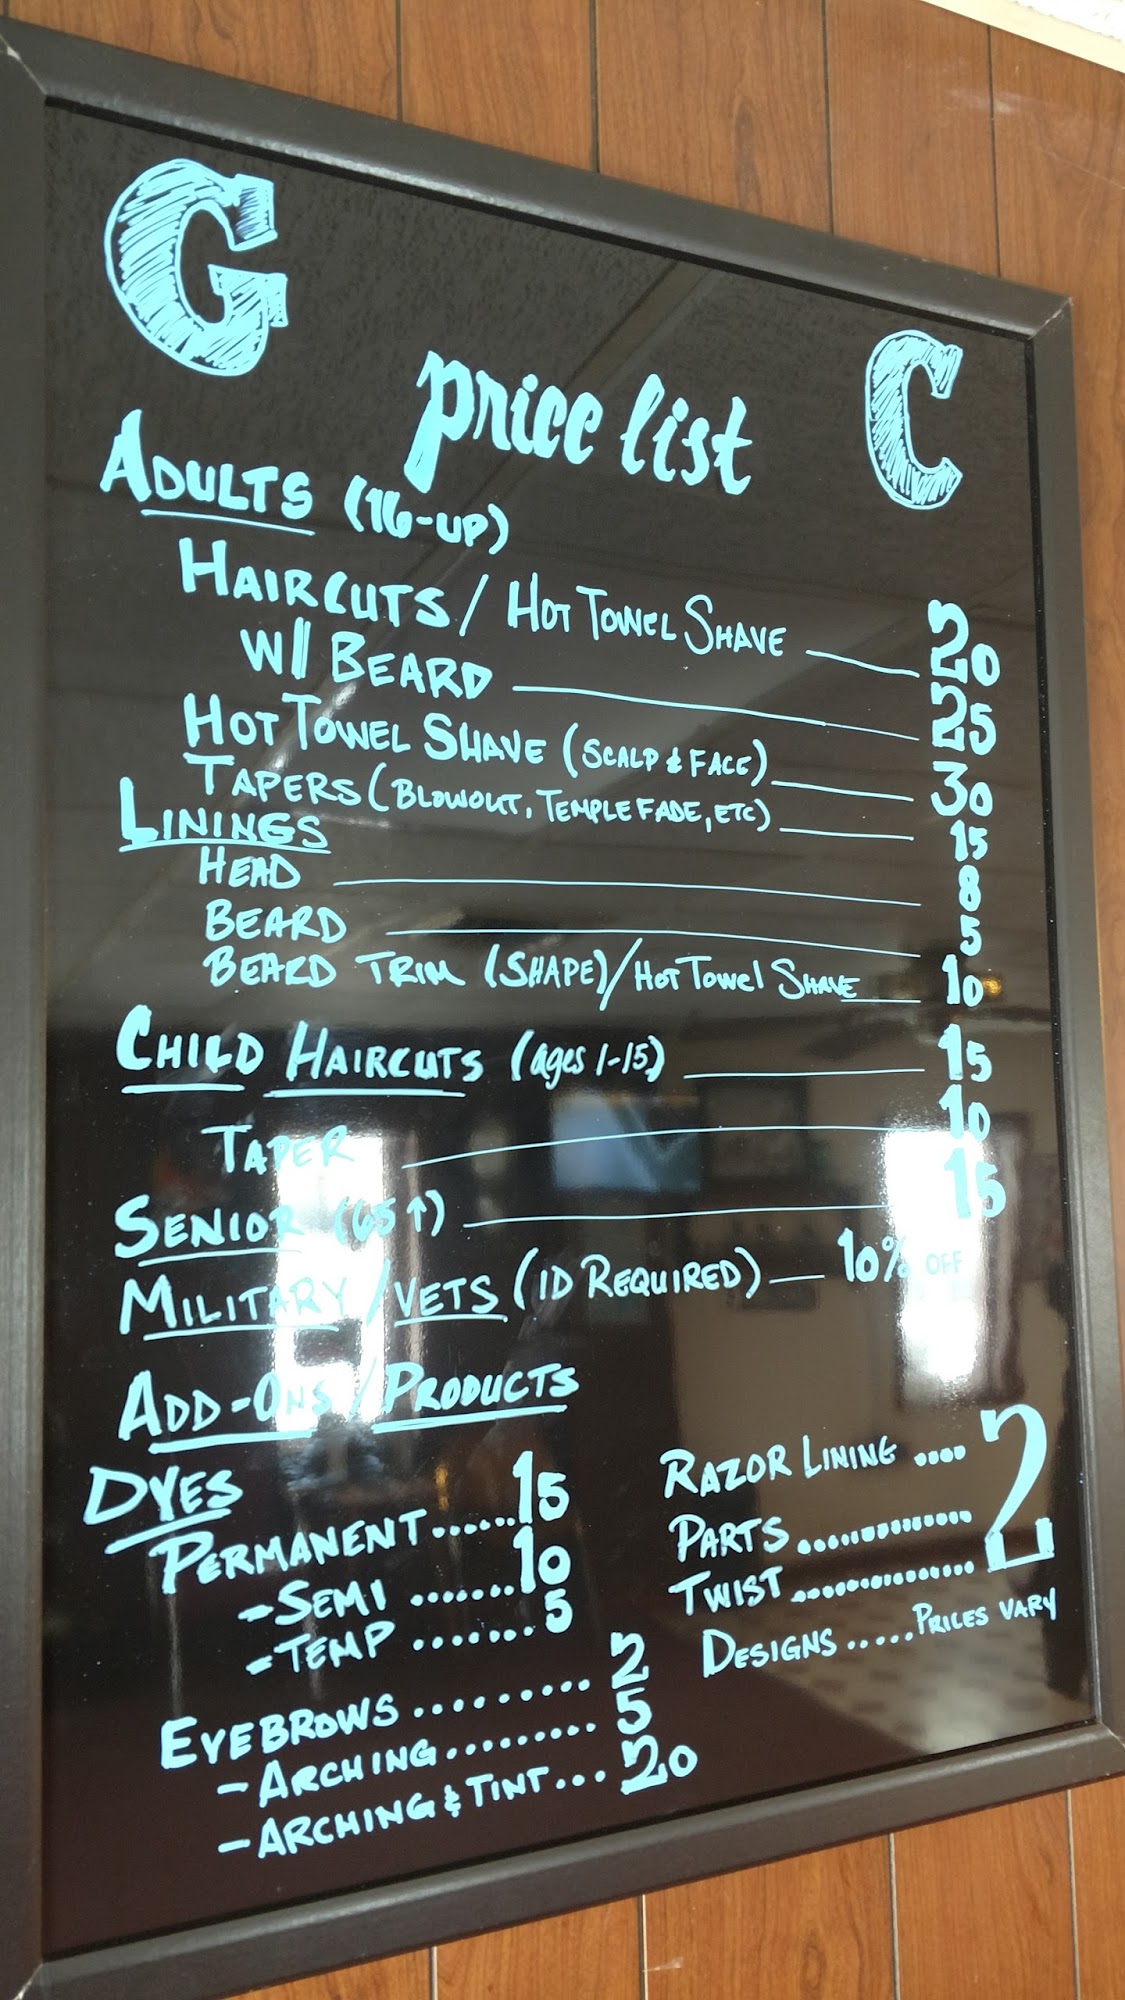 G C
price list
ADULTS (16-UP)
HAIRCUTS / HOT TOWEL SHAVE 20
W/ BEARD 25
HOT TOWEL SHAVE (SCALP & FACE) 30
TAPERS (BLOWOUT, TEMPLE FADE, ETC) 15
LININGS
HEAD 8
BEARD 5
BEARD TRIM (SHAPE) / HOT TOWEL SHAVE 10
CHILD HAIRCUTS (ages 1-15) 15
TAPER 10
SENIOR (65↑) 15
MILITARY / VETS (ID REQUIRED) — 10% OFF
ADD-ONS / PRODUCTS
DYES
PERMANENT......15
-SEMI .......10
-TEMP .......5
EYEBROWS .........2
-ARCHING.........5
-ARCHING & TINT...20
RAZOR LINING .... 2
PARTS ..............
TWIST ..............
DESIGNS .....PRICES VARY